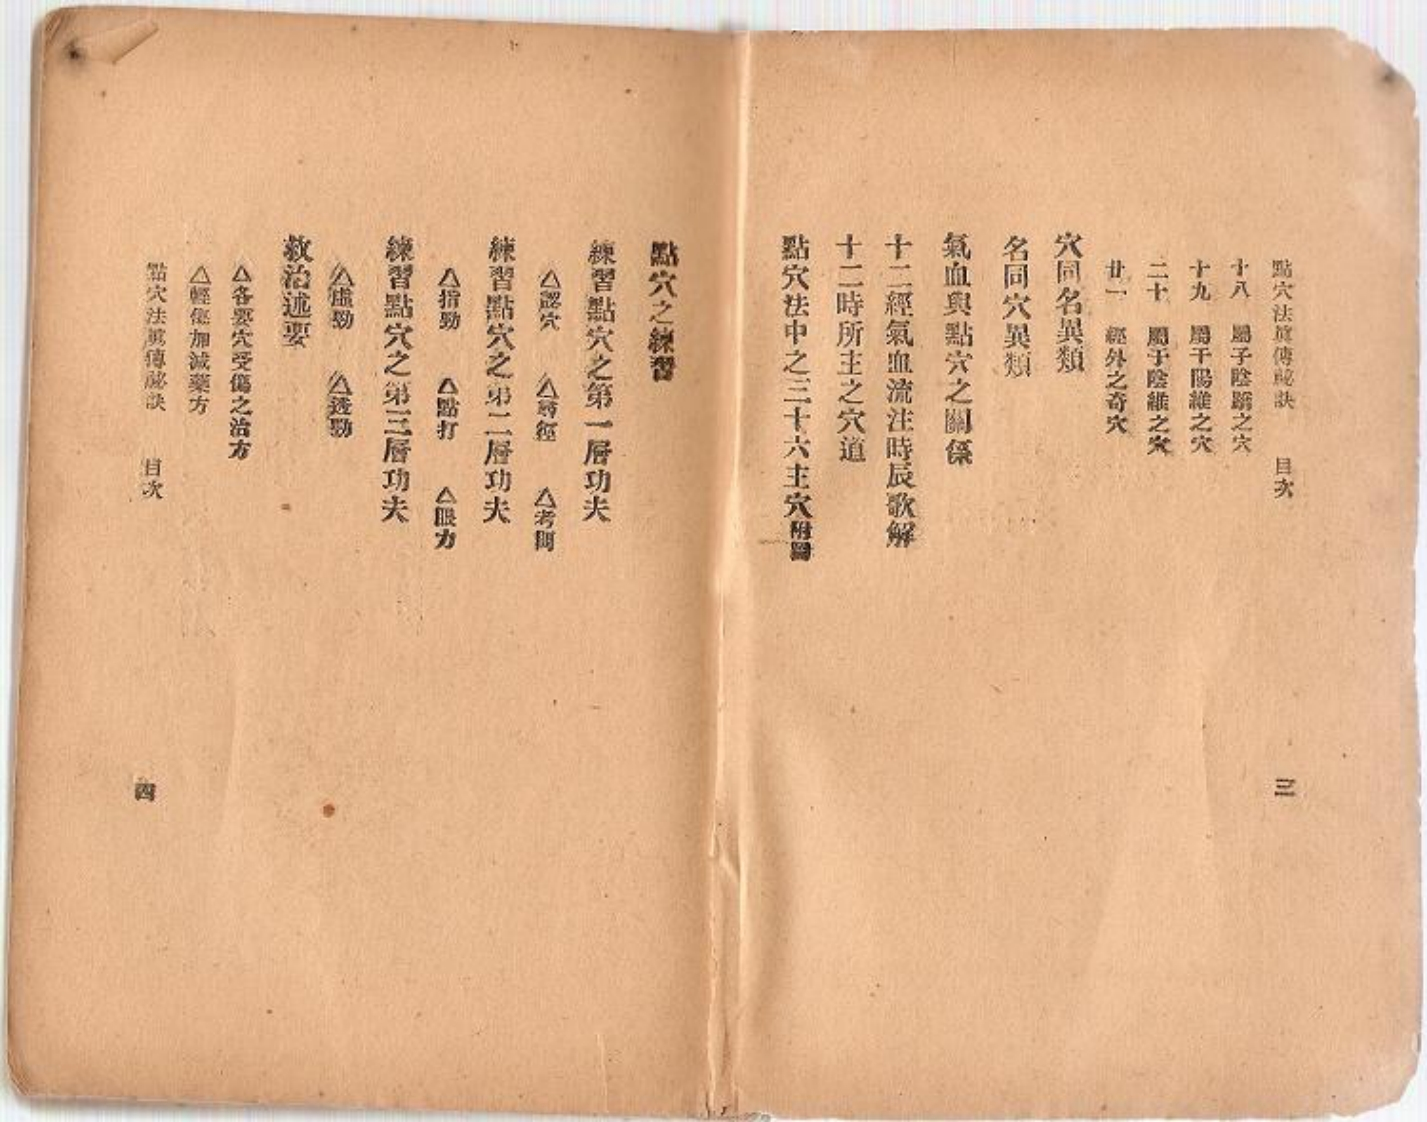 點穴法眞傳秘訣 目次 三
十八 屬于陰蹻之穴
十九 屬于陽維之穴
二十 屬于陰維之穴
廿一 經外之奇穴
穴同名異類
名同穴異類
氣血與點穴之關係
十二經氣血流注時辰歌解
十二時所主之穴道
點穴法中之三十六主穴附圖
點穴之練習
練習點穴之第一層功夫
△認穴 △尋徑 △考問
練習點穴之第二層功夫
△指勁 △點打 △眼力
練習點穴之第三層功夫
△虛勁 △透勁
救治述要
△各要穴受傷之治方
△輕傷加減藥方
點穴法眞傳秘訣 目次 四